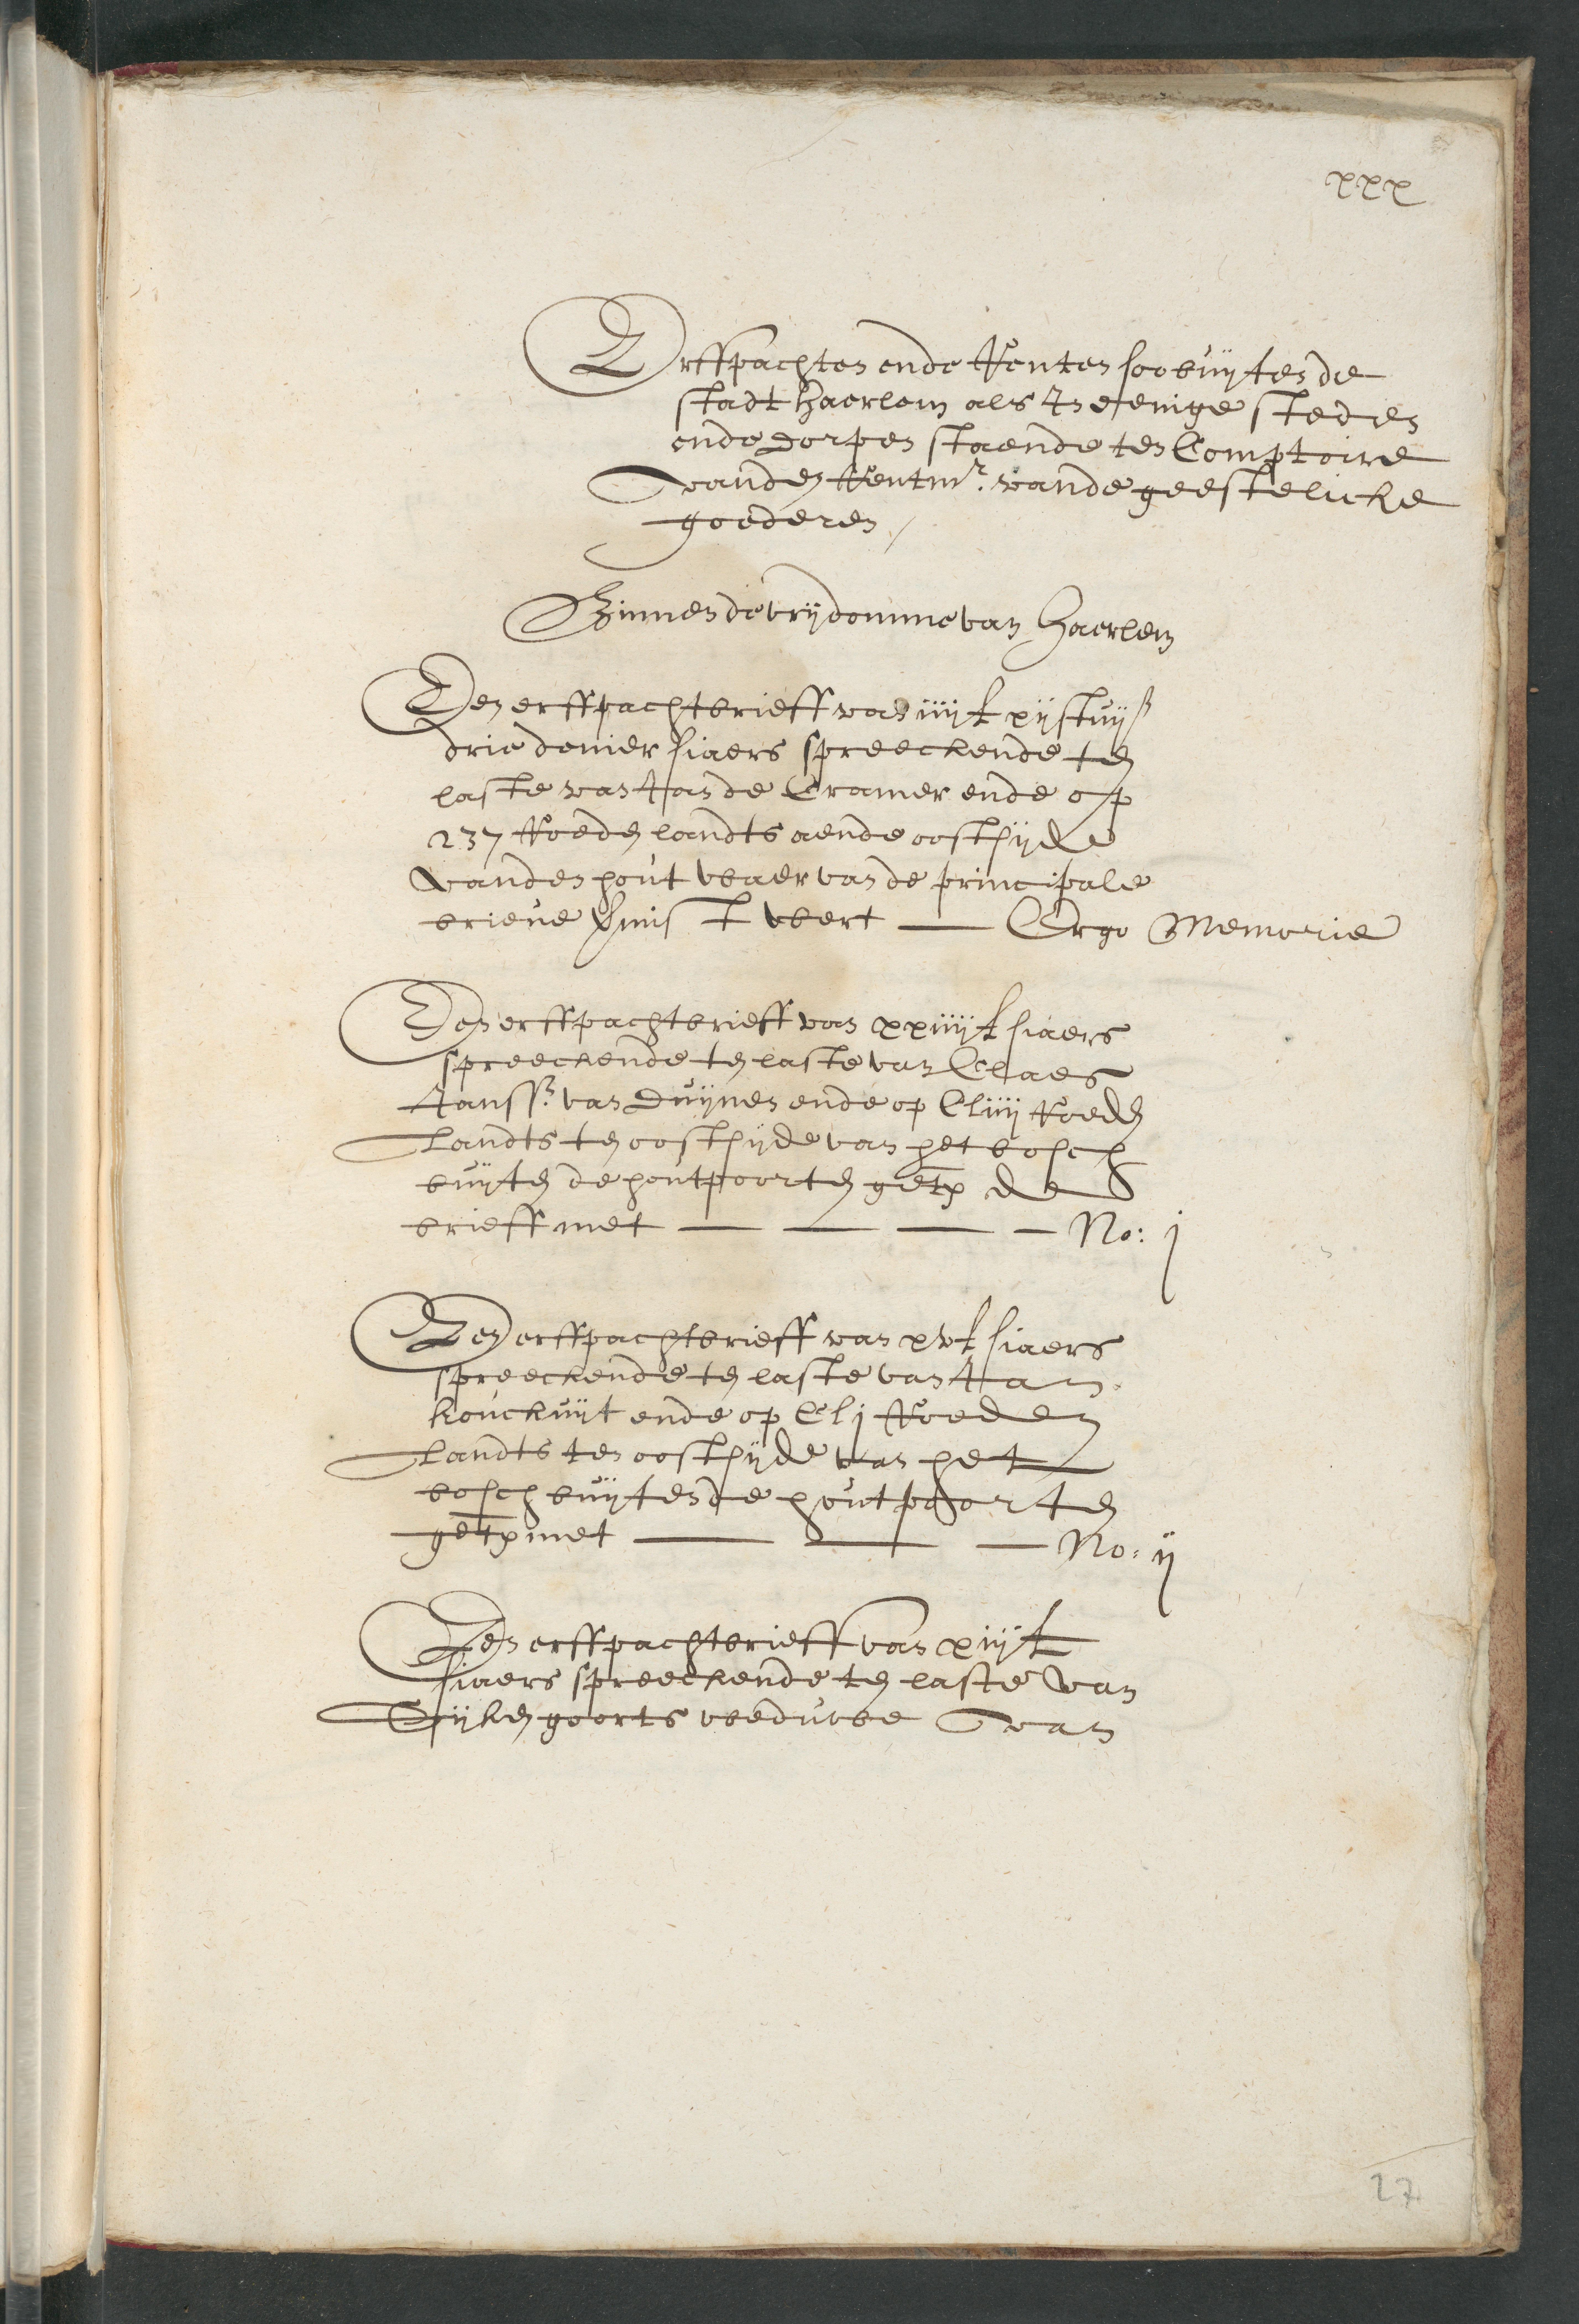 xxx
Erffpachten ende Renten soo buijten de
stadt haerlem als In eenige steden
ende dorpen staende ten Comptoire
vanden Rentmr. vande geestelicke
goederen /
Binnen de vrijdomme van haerlem
Een erffpachtbrieff van iiij £ xij stuijs
drie denier siaers spreeckende ten
laste van Jan de Cramer ende op
237 Roeden landts aende oostsijde
vanden hout waer van de principale
brieve gemist wert — Ergo Memorie
Een erffpachtbrieff van xxiiij £ siaers
spreeckende ten laste van Claes
Janssn. van Duijnen ende op Cliiij Roeden
Landts ten oostsijde van het bosch
buijten de houtpoorten getx de
brieff met — — — — No: j
Een erffpachtbrieff van xv £ siaers
spreeckende ten laste van Jan
kouckuijt ende op Clj Roeden
Landts ten oostsijde van het
bosch buijten de houtpoorten
getx met — — — No: ij
Een erffpachtbrieff van xiij £
siaers spreeckende ten laste van
goorts weduwe van
27